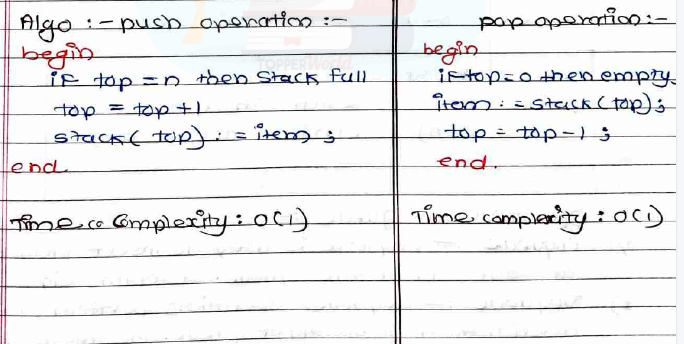 Algo :- push operation :-
begin
if top = n then Stack full
top = top + 1
stack ( top) : = item ;
end.
Time co Complexity : O(1)
pop operation :-
begin
if top = 0 then empty.
item : = stack (top) ;
top = top - 1 ;
end.
Time complexity : O(1)
TOPPERWorld